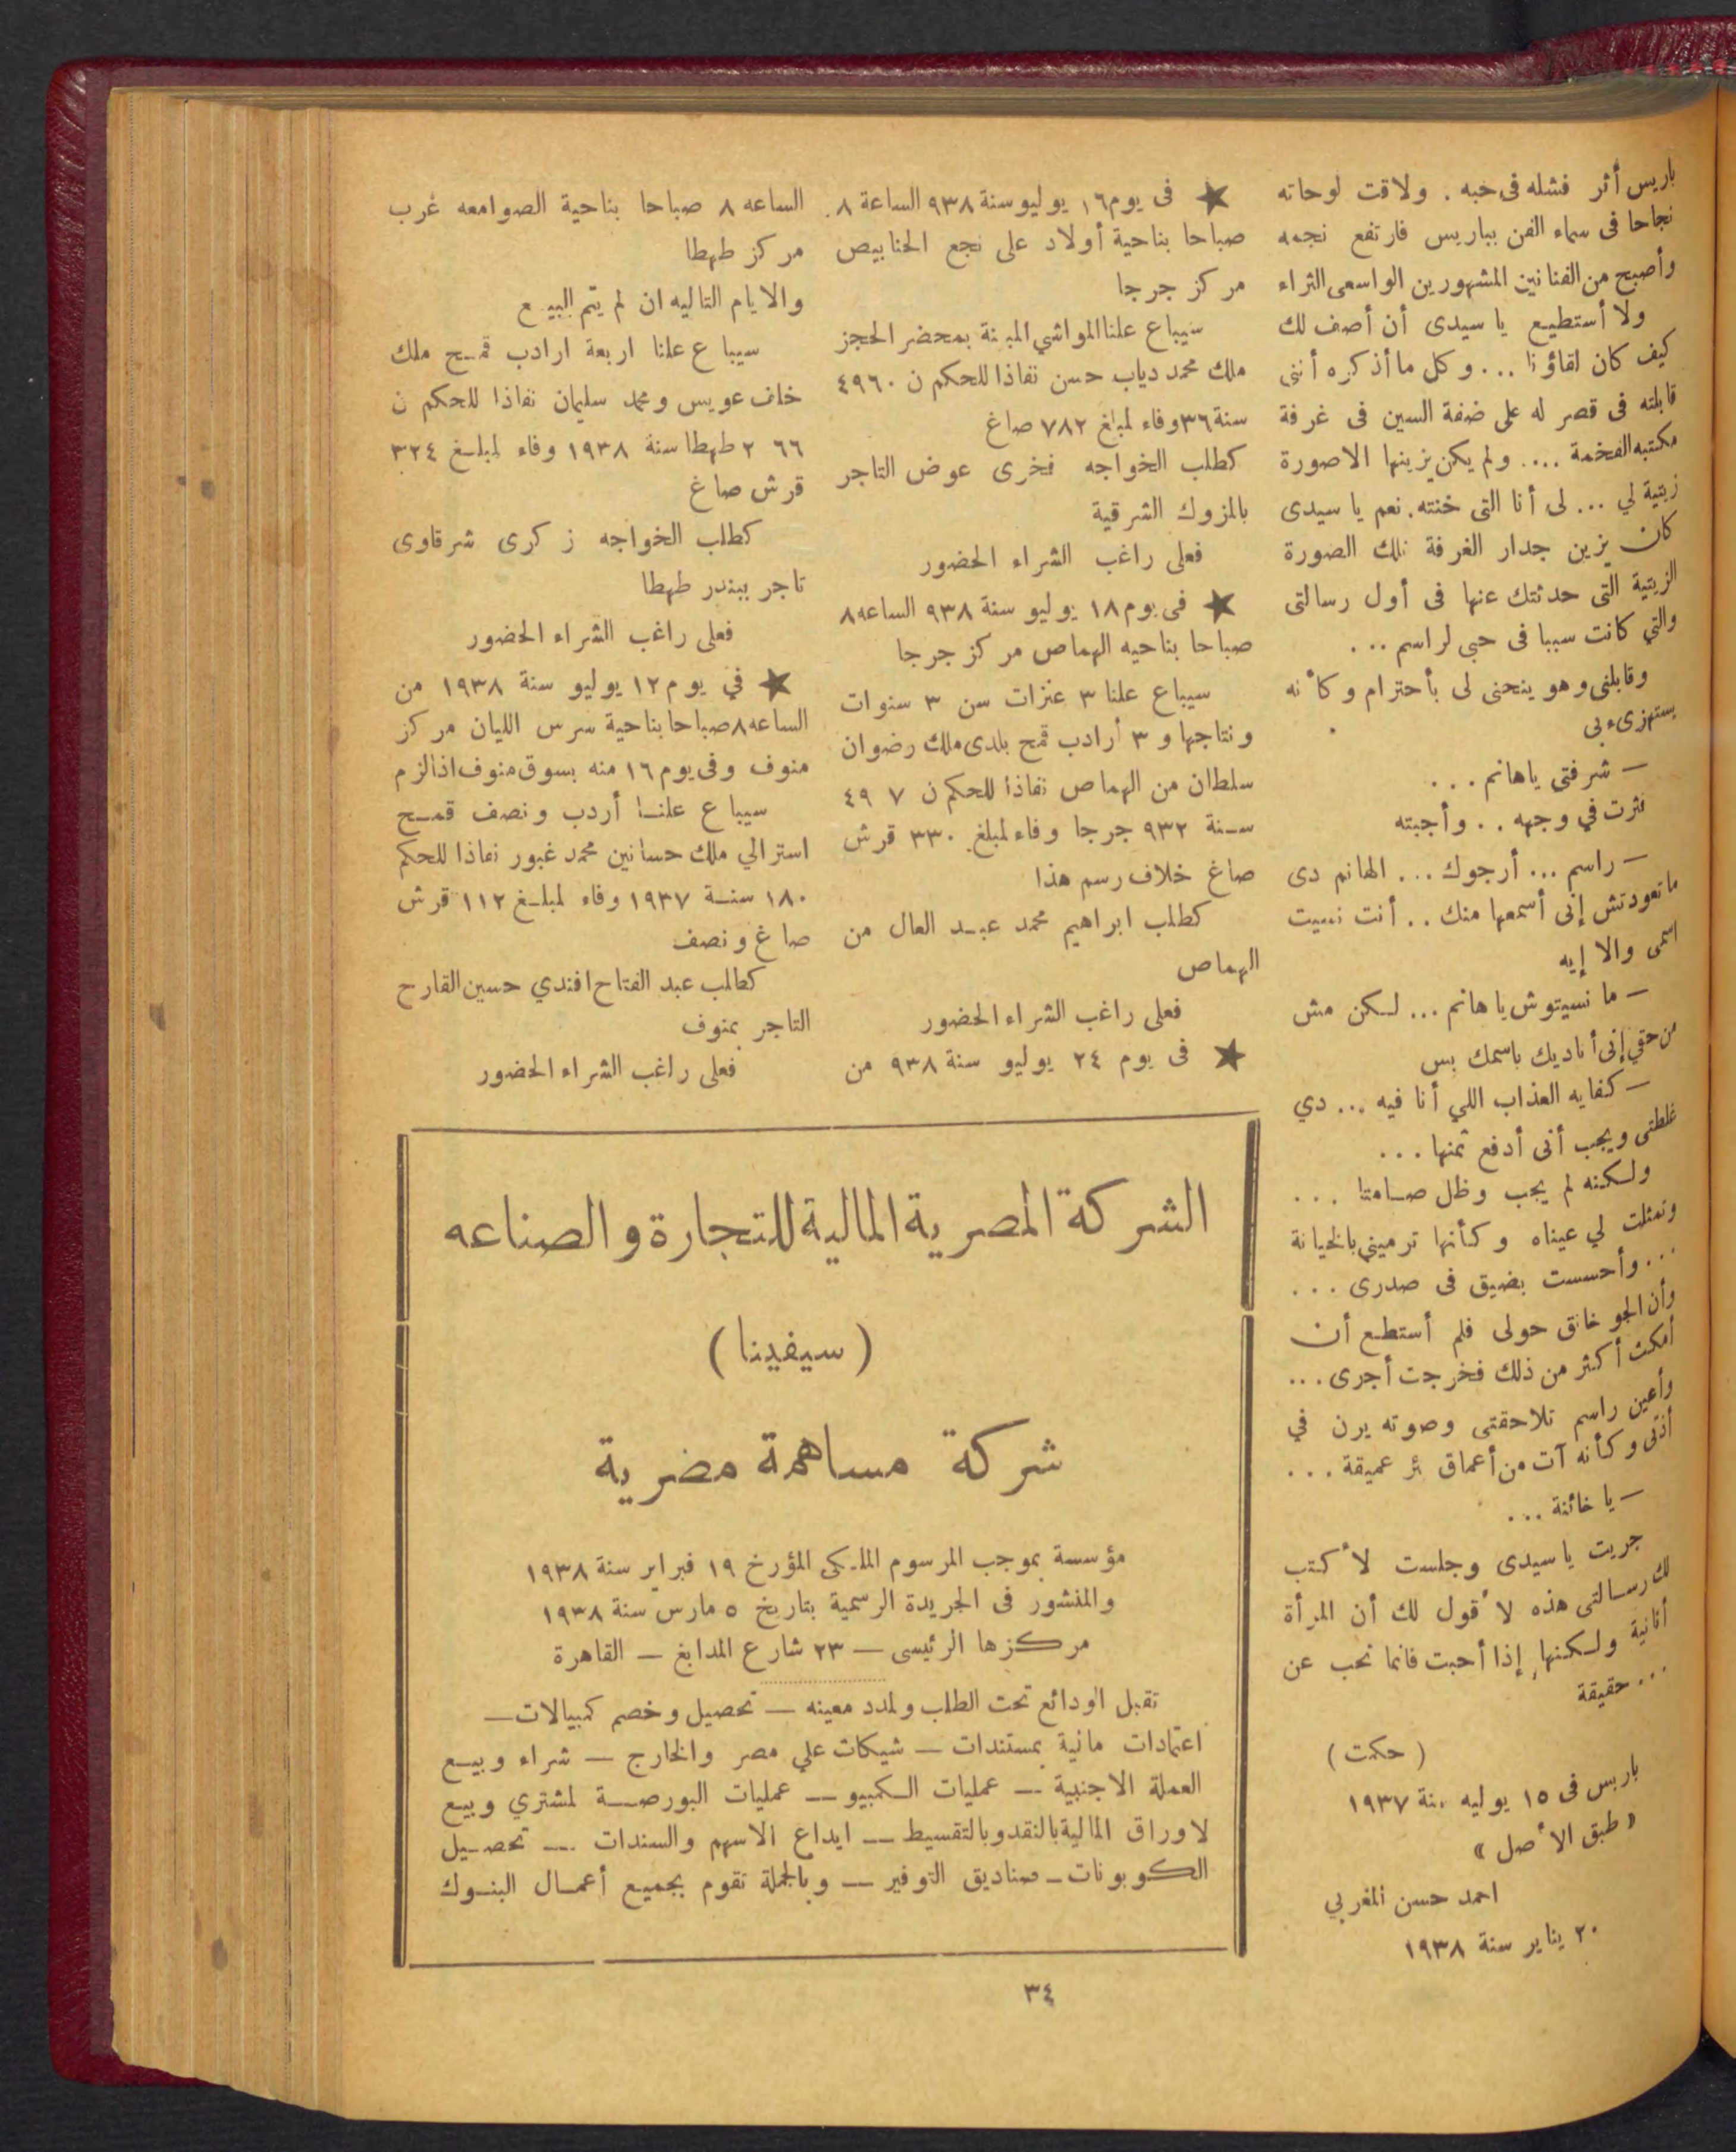 باريس أثر فشله في حبه . ولاقت لوحاته
نجاحا فى سماء الفن بباريس فارتفع نجمه
وأصبح من الفنانين المشهورين الواسعى الثراء
ولا أستطيع يا سيدى أن أصف لك
كيف كان لقاؤنا ... وكل ما أذكره أننى
قابلته فى قصر له على ضفة السين فى غرفة
مكتبه الفخمة .... ولم يكن يزينها الا صورة
زيتية لي ... لى أنا التى خنته . نعم يا سيدى
كان يزين جدار الغرفة تلك الصورة
الزيتية التى حدثتك عنها فى أول رسالتى
والتي كانت سببا فى حبى لراسم ...
وقابلنى وهو ينحنى لى بأحترام وكأنه
يستهزىء بى
— شرفتى ياهانم ...
فثرت في وجهه .. وأجبته
— راسم ... أرجوك ... الهانم دى
ما تعودتش إنى أسمعها منك .. أنت نسيت
اسمى والا إيه
— ما نسيتوش يا هانم ... لكن مش
من حقي إنى أناديك باسمك بس
— كفايه العذاب اللي أنا فيه ... دي
غلطتى ويجب أنى أدفع ثمنها ...
ولكنه لم يجب وظل صامتا ...
وتمثلت لي عيناه وكأنها ترميني بالخيانة
... وأحسست بضيق فى صدرى ...
وأن الجو خانق حولى فلم أستطع أن
أمكث أكثر من ذلك فخرجت أجرى ...
وأعين راسم تلاحقتى وصوته يرن في
أذنى وكأنه آت من أعماق بئر عميقة ...
— يا خائنة ...
جريت ياسيدى وجلست لأكتب
لك رسالتى هذه لأقول لك أن المرأة
أنانية ولكنها إذا أحبت فانما تحب عن
حقيقة ...
( حكمت )
باريس فى ١٥ يوليه سنة ١٩٣٧
« طبق الأصل »
احمد حسن المغربي
٢٠ يناير سنة ١٩٣٨
★ فى يوم ١٦ يوليو سنة ٩٣٨ الساعة ٨
صباحا بناحية أولاد على نجع الحنابيص
مركز جرجا
سيباع علنا المواشي المبينة بمحضر الحجز
ملك محمد دياب حسن نفاذا للحكم ن ٤٩٦٠
سنة ٣٦ وفاء لمبلغ ٧٨٢ صاغ
كطلب الخواجه فخرى عوض التاجر
بالمزوك الشرقية
فعلى راغب الشراء الحضور
★ فى يوم ١٨ يوليو سنة ٩٣٨ الساعه ٨
صباحا بناحيه الهماص مركز جرجا
سيباع علنا ٣ عنزات سن ٣ سنوات
ونتاجها و ٣ أرادب قمح بلدى ملك رضوان
سلطان من الهماص نفاذا للحكم ن ٧ ٤٩
سنة ٩٣٢ جرجا وفاء لمبلغ ٣٣٠ قرش
صاغ خلاف رسم هذا
كطلب ابراهيم محمد عبد العال من
الهماص
فعلى راغب الشراء الحضور
★ فى يوم ٢٤ يوليو سنة ٩٣٨ من
الساعه ٨ صباحا بناحية الصوامعه غرب
مركز طهطا
والايام التاليه ان لم يتم البيع
سيباع علنا اربعة ارادب قمح ملك
خلف عويس ومحمد سليمان نفاذا للحكم ن
٦٦ ٢ طهطا سنة ١٩٣٨ وفاء لمبلغ ٣٢٤
قرش صاغ
كطلب الخواجه زكرى شرقاوى
تاجر ببندر طهطا
فعلى راغب الشراء الحضور
★ في يوم ١٢ يوليو سنة ١٩٣٨ من
الساعه ٨ صباحا بناحية سرس الليان مركز
منوف وفى يوم ١٦ منه بسوق منوف اذا لزم
سيباع علنا أردب ونصف قمح
استرالي ملك حسانين محمد غبور نفاذا للحكم
١٨٠ سنة ١٩٣٧ وفاء لمبلغ ١١٢ قرش
صاغ ونصف
كطلب عبد الفتاح افندي حسين القارح
التاجر بمنوف
فعلى راغب الشراء الحضور
الشركة المصرية المالية للتجارة والصناعه
( سيفينا )
شركة مساهمة مضرية
مؤسسة بموجب المرسوم الملكى المؤرخ ١٩ فبراير سنة ١٩٣٨
والمنشور فى الجريدة الرسمية بتاريخ ٥ مارس سنة ١٩٣٨
مركزها الرئيسى — ٢٣ شارع المدابغ — القاهرة
تقبل الودائع تحت الطلب ولمدد معينه — تحصيل وخصم كمبيالات —
اعتمادات مالية بمستندات — شيكات علي مصر والخارج — شراء وبيع
العملة الاجنبية — عمليات الكمبيو — عمليات البورصة لمشتري وبيع
لاوراق المالية بالنقد وبالتقسيط — ايداع الاسهم والسندات — تحصيل
الكوبونات — صناديق التوفير — وبالجملة تقوم بجميع أعمال البنوك
٣٤